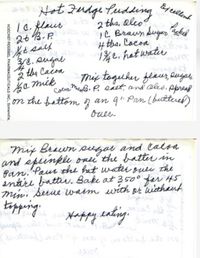 Hot Fudge Pudding Excellent
1 C. flour 2 tbs. Oleo
2 t B.P. 1 C. Brown Sugar Packed
½ t salt 4 tbs. Cocoa
¾ c. sugar 1¾ C. hot water
2 tbs Cocoa
½ C milk Mix together flour, sugar
Cocoa, milk B.P. salt, and Oleo. Spread
on the bottom of an 9" Pan (buttered)
Over.
Mix Brown sugar and Cocoa
and sprinkle over the batter in
Pan. Pour the hot water over the
entire batter. Bake at 350° for 45
min. Serve warm with or without
topping.
Happy eating.